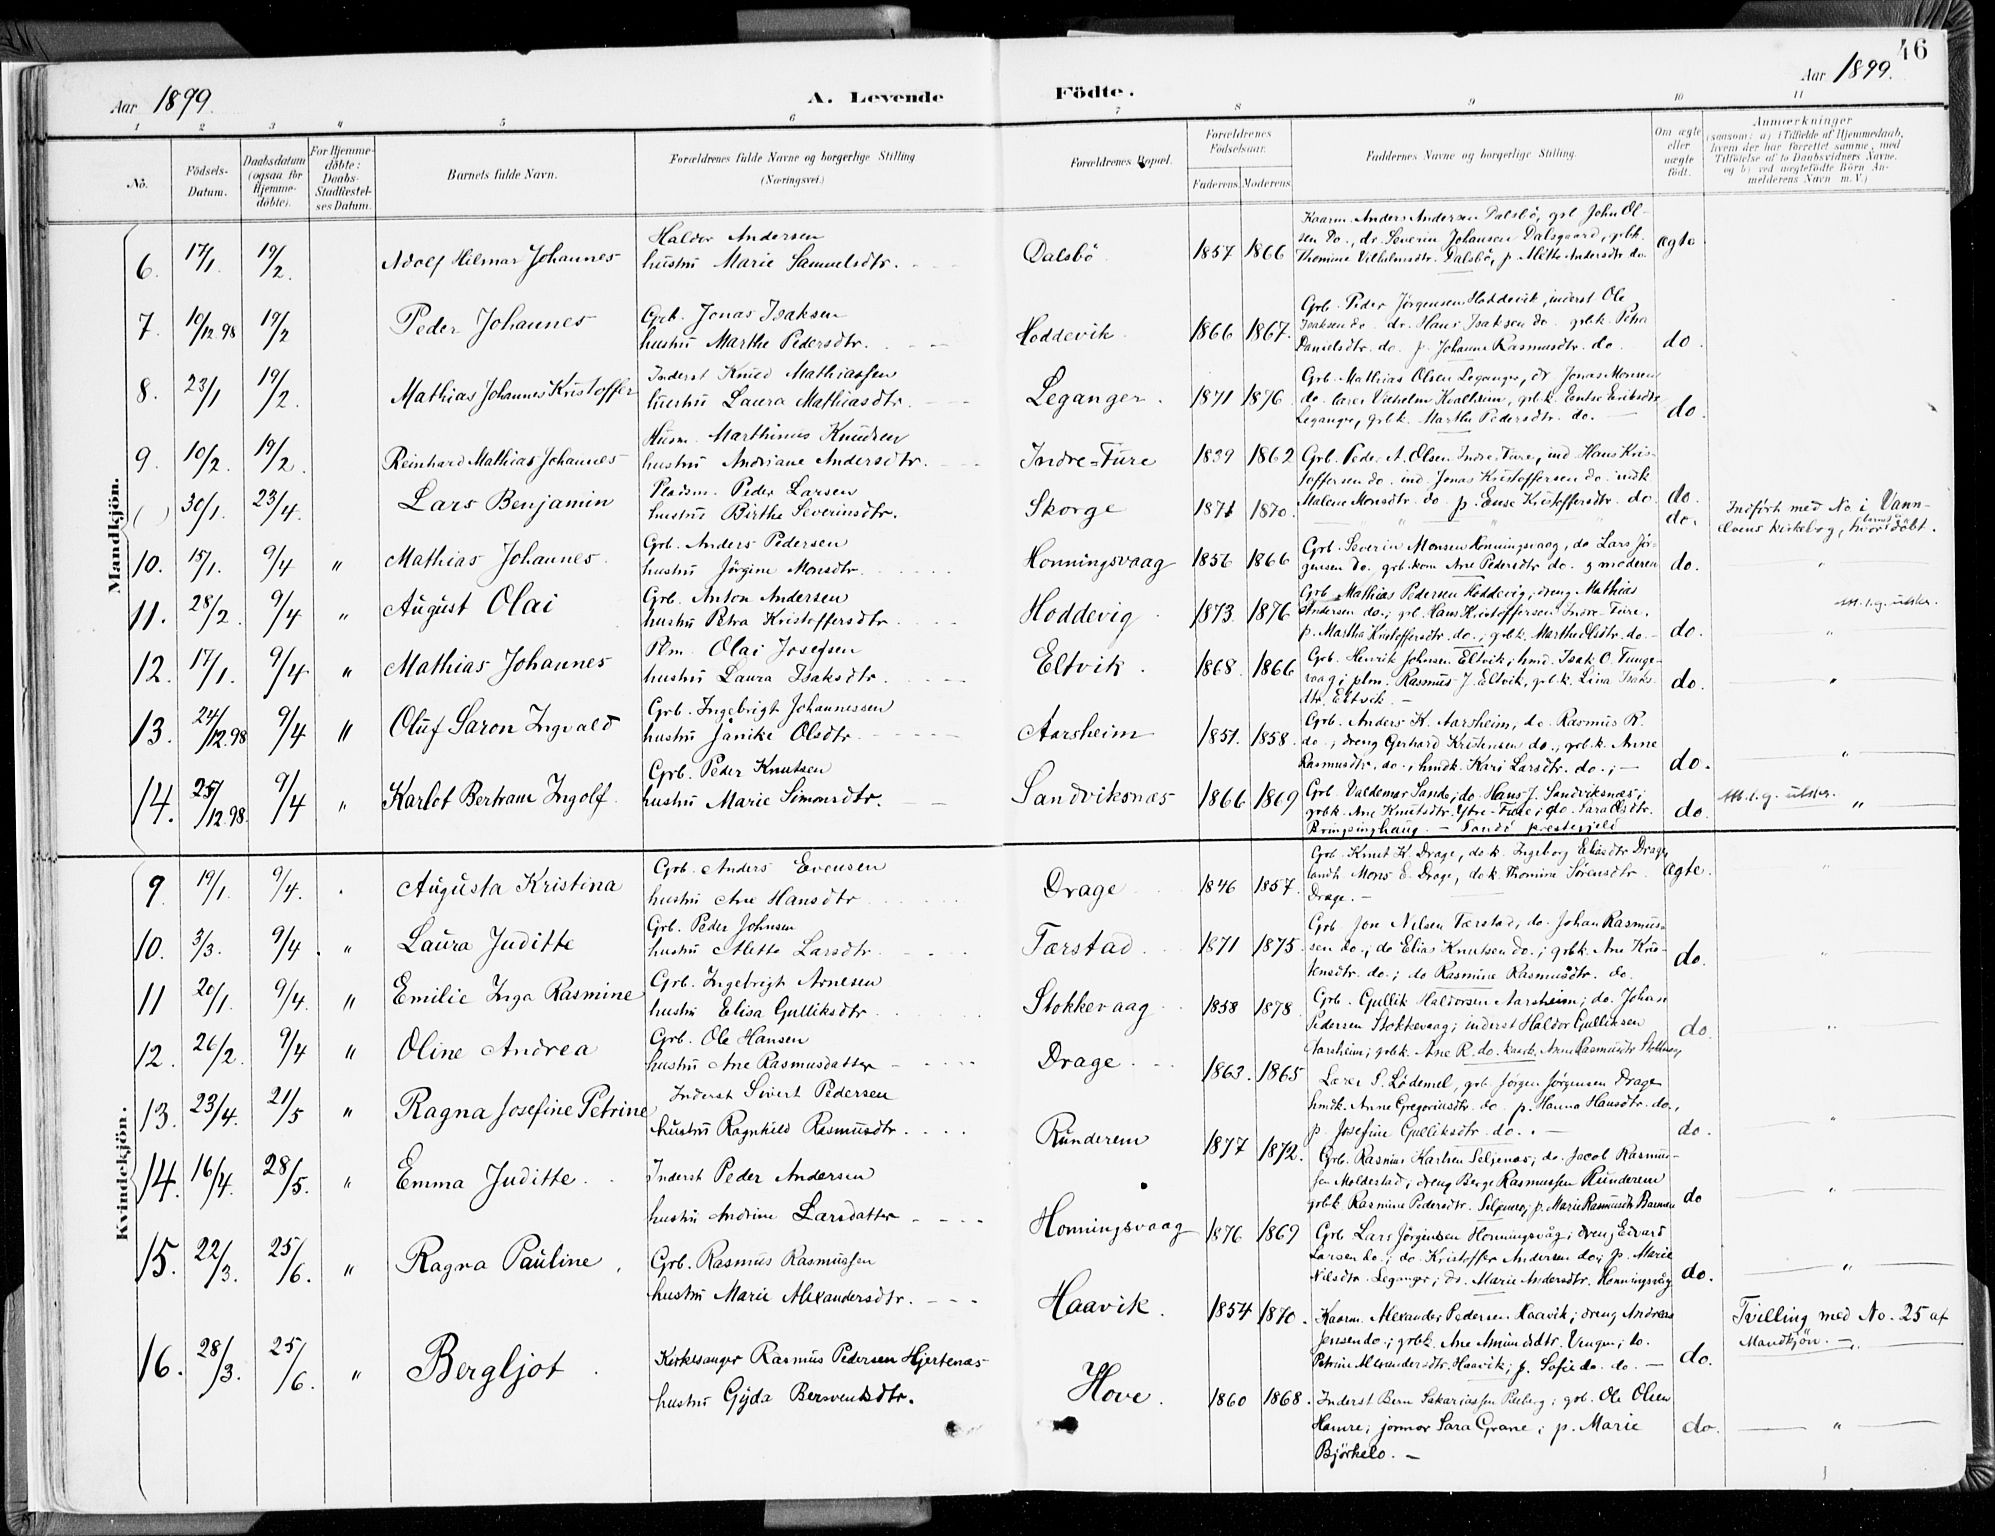 46
Aar 1899.
A. Levende
Födte.
Aar 1899.
1 2 3 4 5 6 7 8 9 10 11
No.
Födsels-Datum.
Daabsdatum (ogsaa for Hjemme-döbte).
For Hjemme-döbte: Daabs-Stadfæstel-ses Datum.
Barnets fulde Navn.
Forældrenes fulde Navne og borgerlige Stilling (Næringsvei.)
Forældrenes Bopæl.
Forældrenes Födselsaar.
Faderens. Moderens.
Faddernes Navne og borgerlige Stilling.
Om ægte eller uægte født.
Anmærkninger
(saasom: a) i Tilfælde af Hjemmedaab, hvem der har forrettet samme, med Tilföielse af to Daabsvidners Navne, og b) ved uægtefödte Börn An-melderens Navn m. V.)
Mandkjön.
6. 17/1. 19/2. Adolf Hilmar Johannes
Haldor Andersen
hustru Marie Samuelsdtr.
Dalsbö 1857 1866
Kaarm. Anders Andersen Dalsbö, grb. John Ol-
sen do., dr. Severin Johansen Dalsgaard, grbk.
Thomine Vilhelmsdtr. Dalsbö, p. Alette Andersdtr. do.
Ægte
7. 10/12.98 19/2 Peder Johannes
Grb. Jonas Isaksen
hustru Marthe Pedersdtr.
Hoddevik. 1866 1867.
Grb. Peder Jörgensen Hoddevik, inderst Ole
Isaksen do. dr. Hans Isaksen do. grbk. Petra
Danielsdtr. do. p. Johanne Rasmusdtr. do.
do.
8. 23/1 19/2. Mathias Johannes Kristoffer
Inderst Knud Mathiassen
hustru Laura Mathiasdtr.
Leganger. 1871 1876.
Grb. Mathias Olsen Leganger, dr Jonas Monsen
do. lærer Vilhelm Kvalheim, grb.k. Eriksdtr
Leganger, grbk. Marthe Pedersdtr. do.
do.
9. 10/2. 19/2. Reinhard Mathias Johannes
Husm. Marthinus Knudsen
hustru Andriane Andersdtr.
Indre-Fure 1839 1862
Grb. Peder A. Olsen Indre-Fure, ind Hans Kris-
toffersen do. ind. Jonas Kristoffersen do. indk
Malene Monsdtr. do p. Kristoffersdtr. do.
do.
( ) 30/1. 23/4. Lars Benjamin
Pladsm. Peder Larsen
hustru Birthe Severinsdtr.
Skorge 1871 1870.
do.
Indfört med No. i Vann-
elvens kirkebog, hvor barnet er döbt.
10. 15/1. 9/4 " Mathias Johannes.
Grb. Anders Pedersen
hustru Jörgine Monsdtr.
Honningsvaag 1856 1866
Grb. Severin Monsen Honningsvaag, do Lars Jör-
gensen do. grb.kon Ane Pedersdtr do. & moderen
do.
"
11. 28/2. 9/4 " August Olai
Grb. Anton Andersen
hustru Petra Kristoffersdtr.
Hoddevig 1873. 1876
Grb Mathias Pedersen Hoddevig, dreng Mathias
Andersen do.; grb. Hans Kristoffersen Indre-Fure.
p. Martha Kristoffersdtr. do.; grbk. Marthe Olsdtr. do.
do.
"
12. 17/1. 9/4 " Mathias Johannes
Plm. Olai Josefsen
hustru Laura Isaksdtr.
Eltvik. 1868. 1866
Grb. Henrik Johnsen Eltvik; hmd. Isak O. Tunge-
vaag; plm. Rasmus J. Eltvik, grb.k. Lina Isaks-
dtr. Eltvik.
do.
"
13. 24/12.98 9/4 " Oluf Saron Ingvald
Grb. Ingebrigt Johannessen
hustru Janike Olsdtr.
Aarsheim 1851. 1858.
Grb. Anders K. Aarsheim, do. Rasmus R.
do.; dreng Gerhard Kristensen do., grb.k. Anne
Rasmusdtr. do.; hmdk. Kari Larsdtr. do.;
do.
"
14. 25/12.98. 9/4 " Karlot Bertram Ingolf.
Grb. Peder Knutsen
hustru Marie Simonsdtr.
Sandviksnæs 1866 1869
Grb. Valdemar Sande; do. Hans J. Sandviksnæs;
grbk. Ane Knutsdtr. Ytre-Fure; do. Sara Olsdtr.
Bringsinghaug. — Sandö prestegjeld
do.
"
Kvindekjön.
9 19/1. 9/4. Augusta Kristina
Grb. Anders Evensen
hustru Ane Hansdtr
Drage 1846 1857.
Grb. Knut K. Drage, do k. Ingeborg Eliasdtr Drage
landh. Mons E. Drage, do k. Thomine Sörensdtr.
Drage.
Ægte.
"
10. 3/3. 9/4 " Laura Juditte
Grb. Peder Johnsen
hustru Alette Larsdtr.
Færstad. 1871 1875
Grb. Jon Nilsen Færstad, do. Johan Rasmus-
sen do., do Elias Knutsen do.; grbk. Ane Kris-
tensdtr. do.; do Rasmine Rasmusdtr. do.
do.
"
11 20/1. 9/4. " Emilie Inga Rasmine
Grb. Ingebrigt Arnesen
hustru Elisa Gulliksdtr
Stokkevaag 1858 1878
Grb. Gullik Haldorsen Aarsheim; do. Johan
Pedersen Stokkevaag; inderst Haldor Gulliksen
Aarsheim; grbk. Ane R. do. Anne Rasmusdtr
do.
"
12. 26/2. 9/4 " Oline Andrea
Grb. Ole Hansen
hustru Ane Rasmusdatter
Drage. 1863. 1865
Lærer S. Lödemel, grb. Jörgen Jörgensen Drage
hmdk. Anne Gregoriusdtr. do. p. Hanna Hansdtr. do.,
p. Josefine Gulliksdtr. do.
do.
"
13. 23/4. 21/5 " Ragna Josefine Petrine
Inderst Sivert Pedersen
hustru Ragnhild Rasmusdtr.
Runderem 1877 1872.
Grb. Rasmus Karlsen Seljenæs; do. Jacob Rasmus-
sen Moldestad; dreng Berge Rasmussen Runderem
grbk Rasmine Pedersdtr. p. Marie Rasmusdtr
do
"
14. 16/4. 28/5. " Emma Juditte.
Inderst Peder Andersen
hustru Andrine Larsdatter
Honningsvaag 1876 1869
Grb Lars Jörgensen Honningsvåg; dreng Edvard
Larsen do.; do. Kristoffer Andersen do; p. Marie
Nilsdtr. Leganger; do. Marie Andersdtr. Honningsvåg
do.
"
15. 22/3. 25/6. " Ragna Pauline
Grb. Rasmus Rasmussen
hustru Marie Alexandersdtr.
Haavik. 1854 1870.
Kaarm. Alexander Pedersen Haavik; dreng Andreas
Jensen do.; grbk. Ane Amundsdtr. do.
Petrine Alexandersdtr. Haavik; p. Sofie do. do.
do.
Tvilling med No. 25 af
Mandkjön.
16. 28/3. 25/6. " Bergljot
Kirkesanger Rasmus Pedersen Hjertenæs
hustru Gyda Bersventsdtr.
Hove. 1860 1868.
Inderst Bern Sakariassen; grb. Ole Olsen
Hamre; jormor Sara Grane; p. Marie
Björkelo.
do.
"